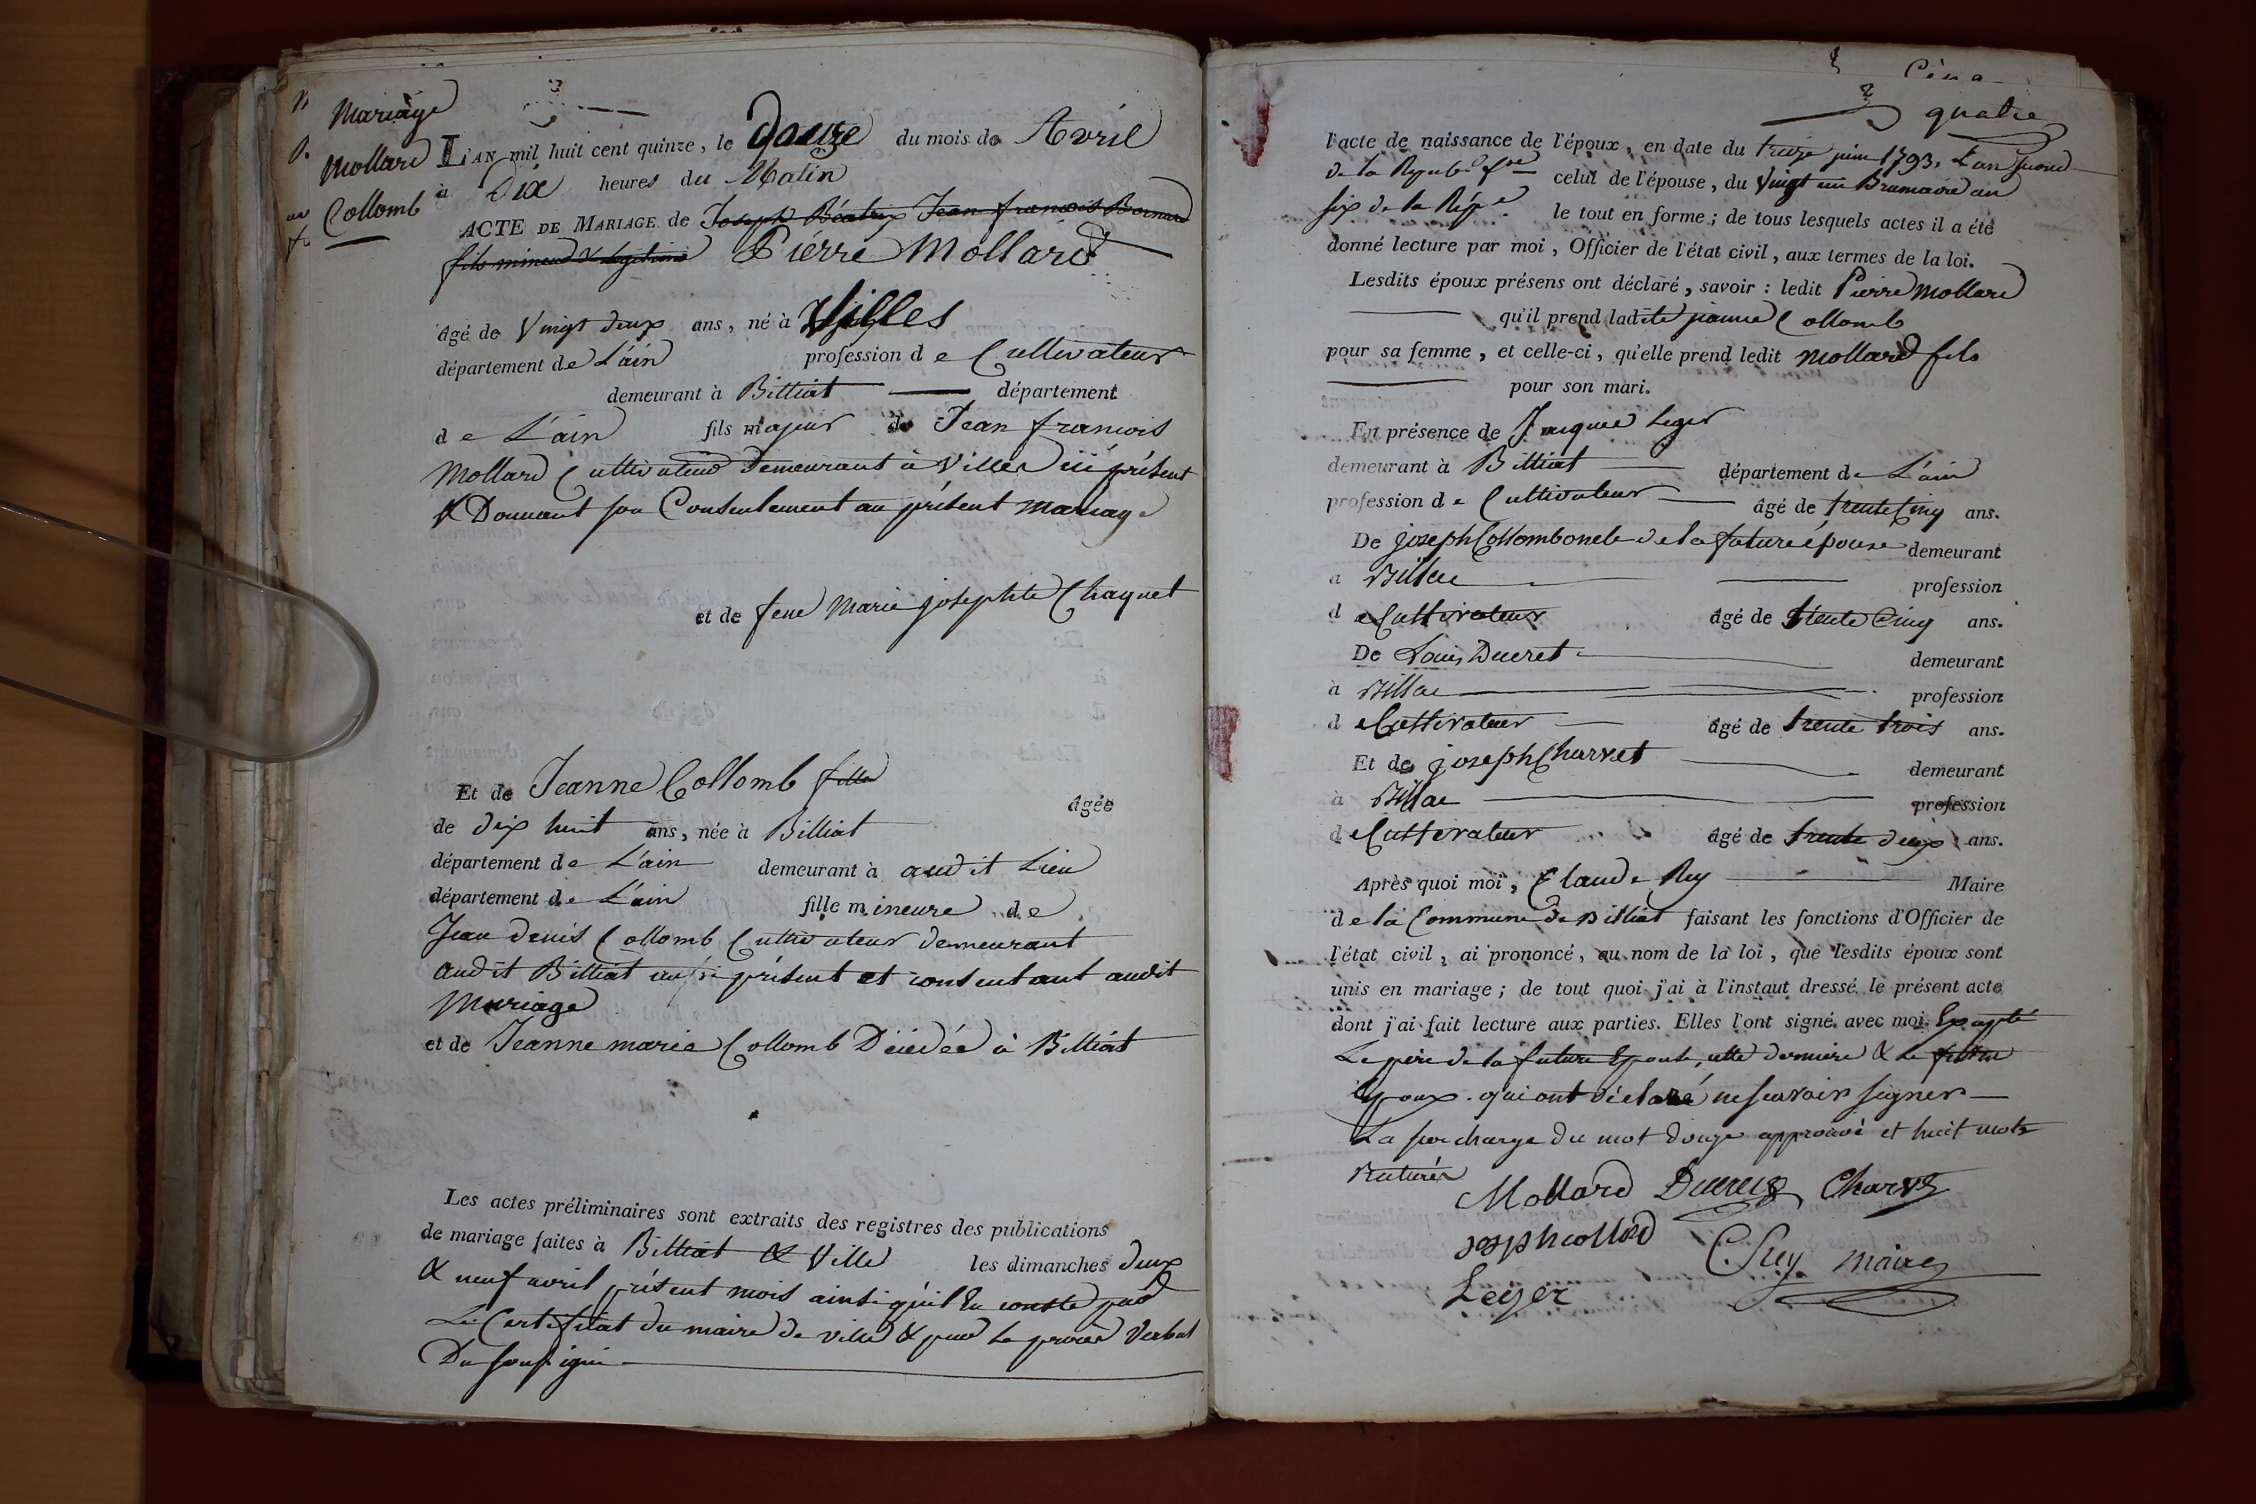 Mariage
Mollard
Collomb
L'AN mil huit cent quinze, le douze du mois de Avril
à Dix heures du Matin
ACTE DE MARIAGE de Joseph Béatrix Jean francois Bernard
fils mineur & légitime Pierre Mollard
âgé de Vingt deux ans, né à Villes
département de L'ain profession de Cultivateur
demeurant à Billiat département
de L'ain fils majeur de Jean francois
Mollard Cultivateur demeurant à Villes ici présent
& Donnant son Consentement au présent mariage
et de feue Marie josephte Chaquet
Et de Jeanne Collomb fille
âgée
de dix huit ans, née à Billiat
département de L'ain demeurant à audit Lieu
département de L'ain fille mineure de
Jean denis Collomb Cultivateur demeurant
audit Billiat aussi présent et consentant audit
Mariage
et de Jeanne marie Collomb Décédée à Billiat
Les actes préliminaires sont extraits des registres des publications
de mariage faites à Billiat & Ville les dimanches deux
& neuf avril présent mois ainsi qu'il En conste par
Le Certificat du maire de ville & par le procès Verbal
Du soussigné
quatre
l'acte de naissance de l'époux, en date du treize juin 1793. L'an second
de la Repub. celui de l'épouse, du Vingt un Brumaire an
six de la Rép. le tout en forme; de tous lesquels actes il a été
donné lecture par moi, Officier de l'état civil, aux termes de la loi.
Lesdits époux présens ont déclaré, savoir : ledit Pierre Mollard
qu'il prend ladite jeanne Collomb
pour sa femme, et celle-ci, qu'elle prend ledit Mollard fils
pour son mari.
En présence de Jacques Leger
demeurant à Billiat département de L'ain
profession de Cultivateur âgé de trente Cinq ans.
De joseph Collomb oncle de la future épouse demeurant
à Billiat profession
de Cultivateur âgé de trente Cinq ans.
De Louis Ducret demeurant
à Billiat profession
de Cultivateur âgé de trente trois ans.
Et de joseph Charvet demeurant
à Billiat profession
de Cultivateur âgé de trente deux ans.
Après quoi moi, Claude Rey Maire
de la Commune de Billiat faisant les fonctions d'Officier de
l'état civil, ai prononcé, au nom de la loi, que lesdits époux sont
unis en mariage; de tout quoi j'ai à l'instaut dressé le présent acte
dont j'ai fait lecture aux parties. Elles l'ont signé avec moi Excepté
Le père de la future Epouse, cette dernière & le futur
Epoux. qui ont déclaré ne scavoir signer
La surcharge du mot douze approuvé et huit mots
Raturés
Mollard Ducret Charvet
Leger C. Rey maire